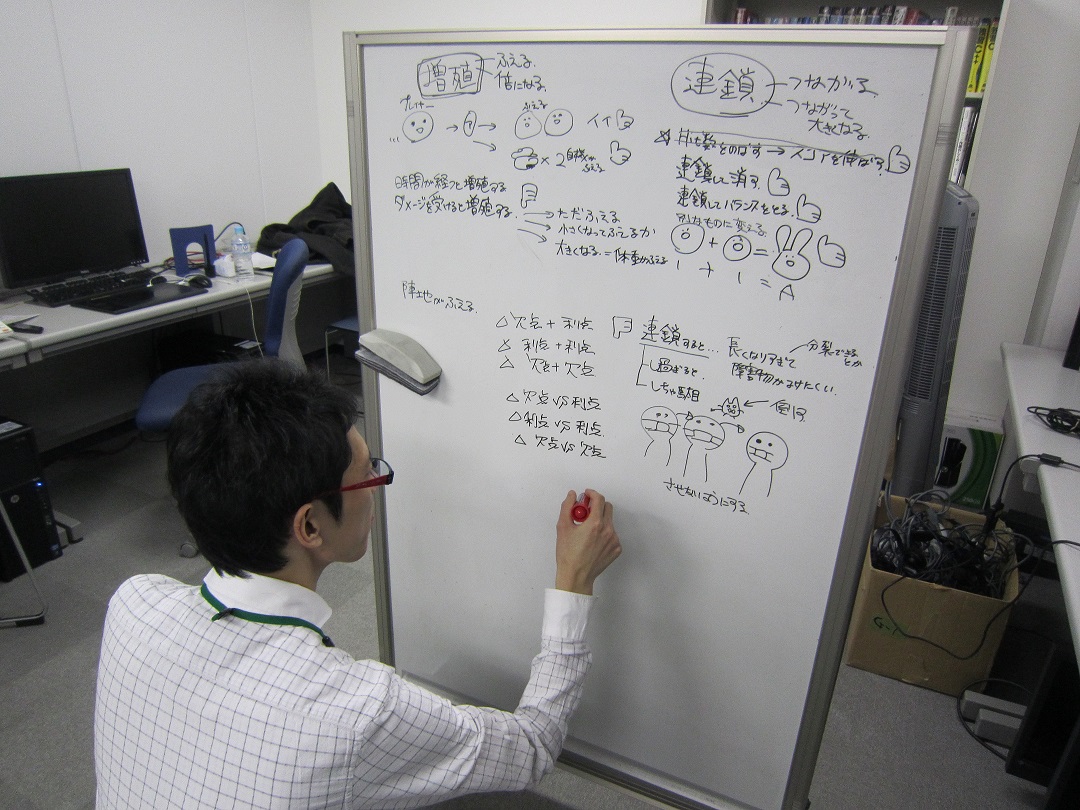 増殖
ふえる
倍になる
プレイヤー
ふえる
イイ
× 2 自機が
ふえる
時間が経つと増殖する
ダメージを受けると増殖する
ただふえる
小さくなってふえるか
大きくなる =
陣地がふえる
△ 欠点 + 利点
× 利点 + 利点
△ 欠点 + 欠点
△ 欠点 VS 利点
△ 利点 VS 利点
△ 欠点 VS 欠点
連鎖
つながる
つながって
大きくなる
をのばす → スコアを伸ばす
連鎖して消す
連鎖してバランスをとる
なものに変える
+ =
1 + 1 = A
連鎖すると…
長くなりすぎて
障害物がよけにくい
分裂できる
とか
過ぎると
しちゃ馬相
させないようにする